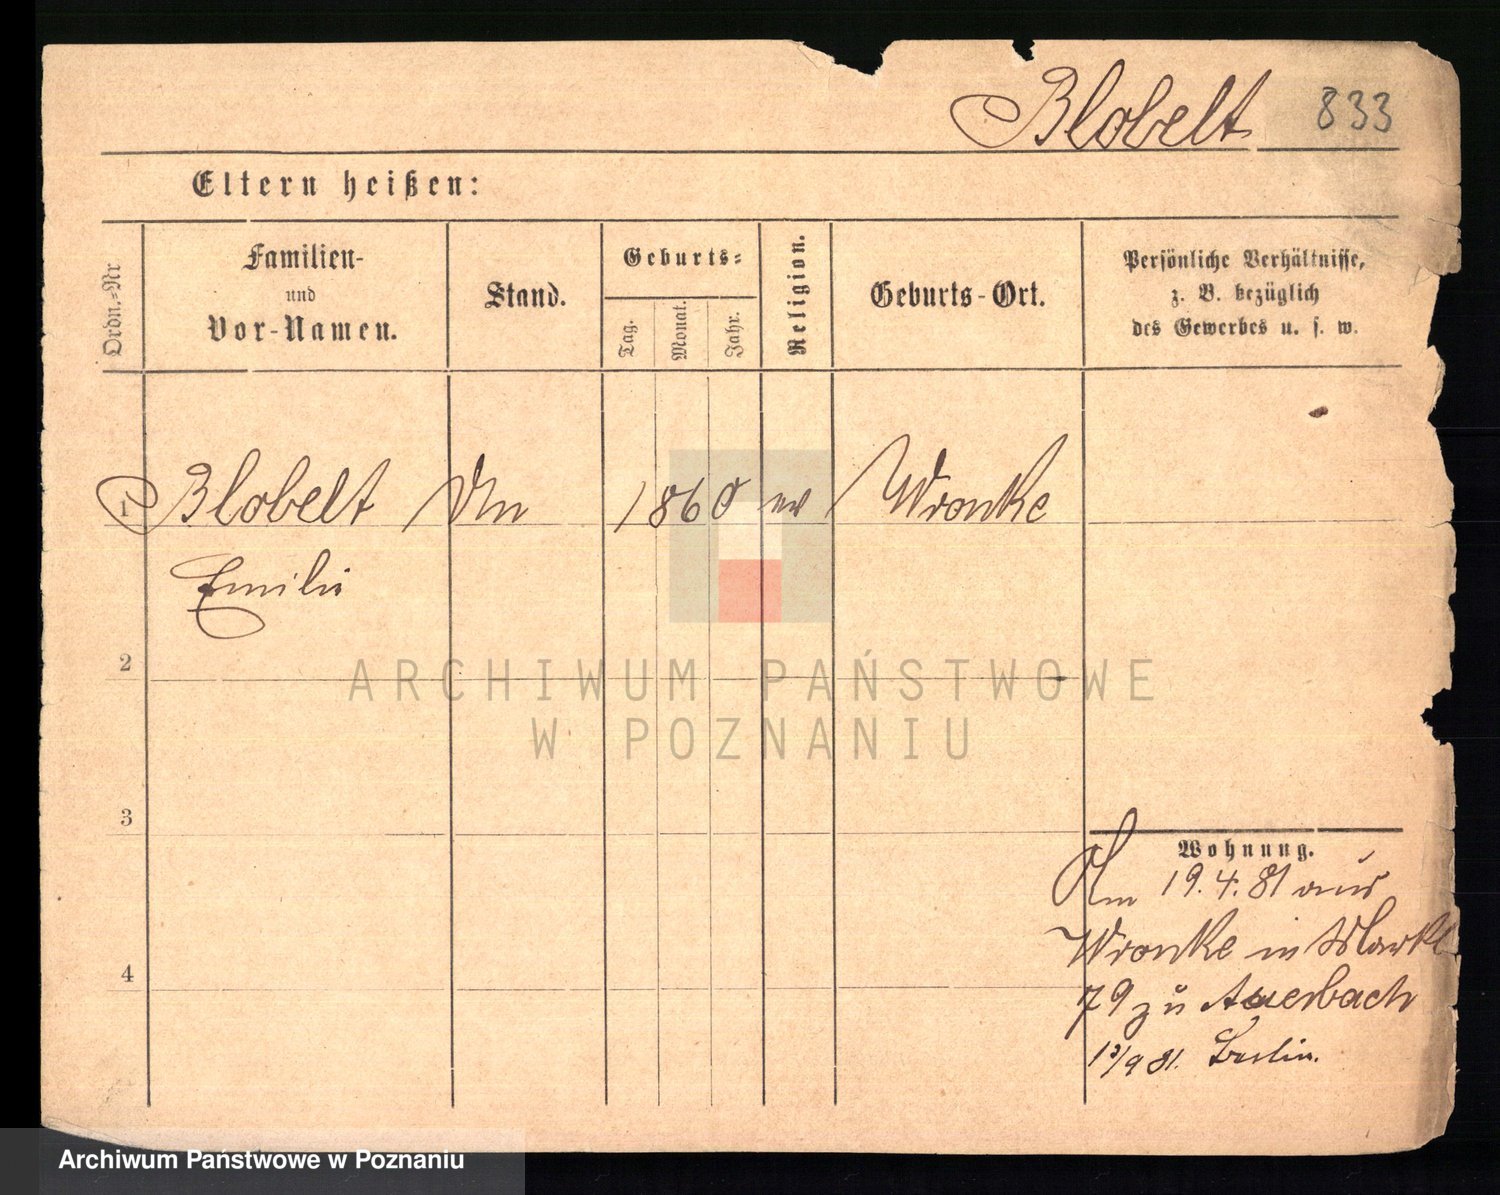 Blobelt 833
Eltern heißen:
Ordn.-Nr
Familien-
und
Vor-Namen.
Stand.
Geburts-
Tag.
Monat.
Jahr.
Religion.
Geburts-Ort.
Persönliche Verhältnisse,
z. B. bezüglich
des Gewerbes u. s. w.
1 Blobelt 1860 ev Wronke
Emilie
2
3
4
Wohnung.
Am 19.4.81 aus
Wronke in Markt
79 zu Auerbach
13/9 81. Berlin.
ARCHIWUM PAŃSTWOWE
W POZNANIU
Archiwum Państwowe w Poznaniu